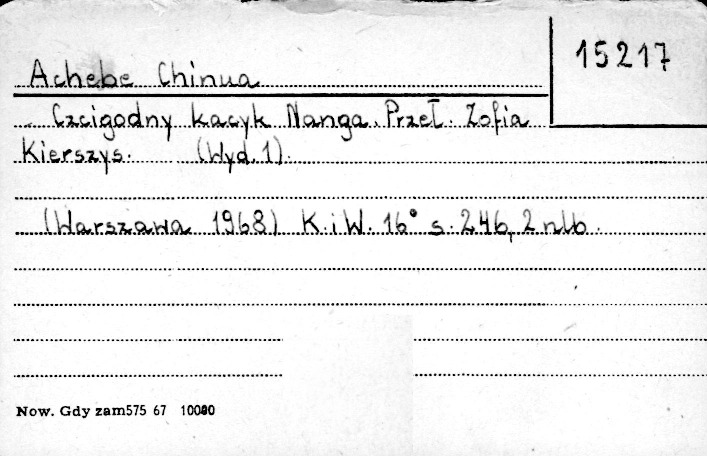 15217
Achebe Chinua
Czcigodny kacyk Nanga. Przeł. Zofia
Kierszys. (Wyd. 1).
(Warszawa 1968) K. i W. 16° s. 246, 2 nlb.
Now. Gdy zam575 67 10000